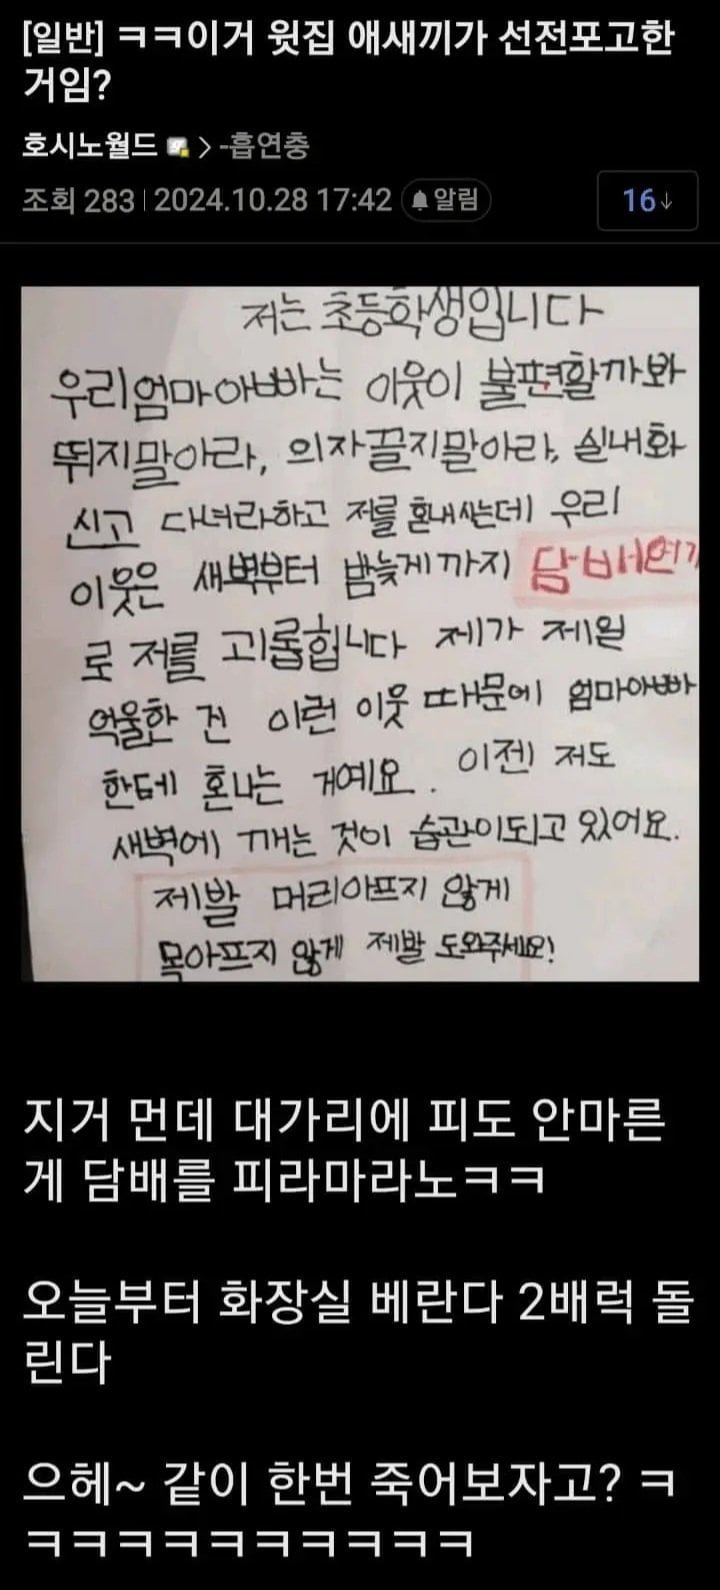 [일반] ㅋㅋ이거 윗집 애새끼가 선전포고한
거임?
호시노월드 > -흡연충
조회 283 | 2024.10.28 17:42 알림
16↓
저는 초등학생입니다
우리엄마아빠는 이웃이 불편할까봐
뛰지말아라, 의자끌지말아라, 실내화
신고 다녀라하고 저를 혼내시는데 우리
이웃은 새벽부터 밤늦게까지 담배연기
로 저를 괴롭힙니다 제가 제일
억울한 건 이런 이웃 때문에 엄마아빠
한테 혼나는 거예요. 이젠 저도
새벽에 깨는 것이 습관이되고 있어요.
제발 머리아프지 않게
목아프지 않게 제발 도와주세요!
지거 먼데 대가리에 피도 안마른
게 담배를 피라마라노ㅋㅋ
오늘부터 화장실 베란다 2배럭 돌
린다
으헤~ 같이 한번 죽어보자고? ㅋ
ㅋㅋㅋㅋㅋㅋㅋㅋㅋㅋ